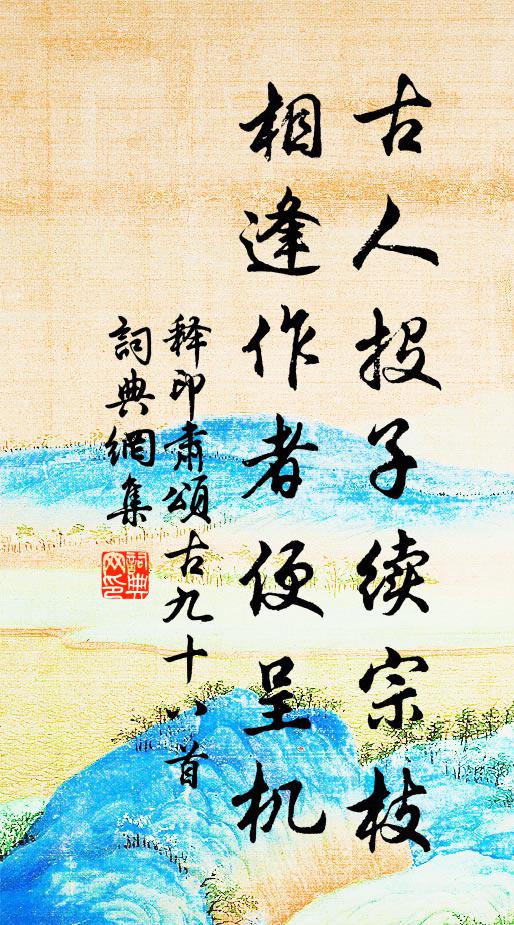 古人投子续宗枝
相逢作者便呈机
释印肃颂古九十八首
詞典網集
詞典
网印